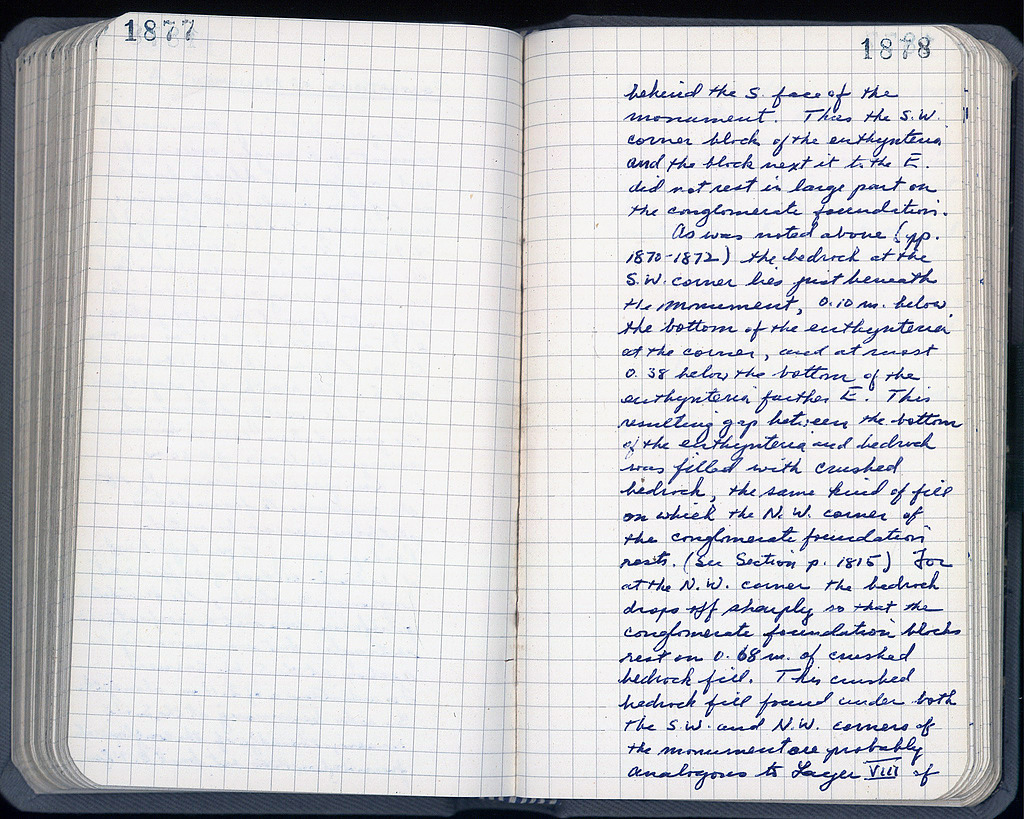 1877
1878
behind the S. face of the
monument. Thus the S.W.
corner block of the euthynteria
and the block next it to the E.
did not rest in large part on
the conglomerate foundation.
As was noted above (pp.
1870-1872) the bedrock at the
S.W. corner lies just beneath
the monument, 0.10 m. below
the bottom of the euthynteria
at the corner, and at most
0.38 below the bottom of the
euthynteria farther E. This
resulting gap between the bottom
of the euthynteria and bedrock
was filled with crushed
bedrock, the same kind of fill
on which the N.W. corner of
the conglomerate foundation
rests. (See Section p. 1815) For
at the N.W. corner the bedrock
drops off sharply so that the
conglomerate foundation blocks
rest on 0.68 m. of crushed
bedrock fill. This crushed
bedrock fill found under both
the S.W. and N.W. corners of
the monument are probably
analogous to Layer VIII of